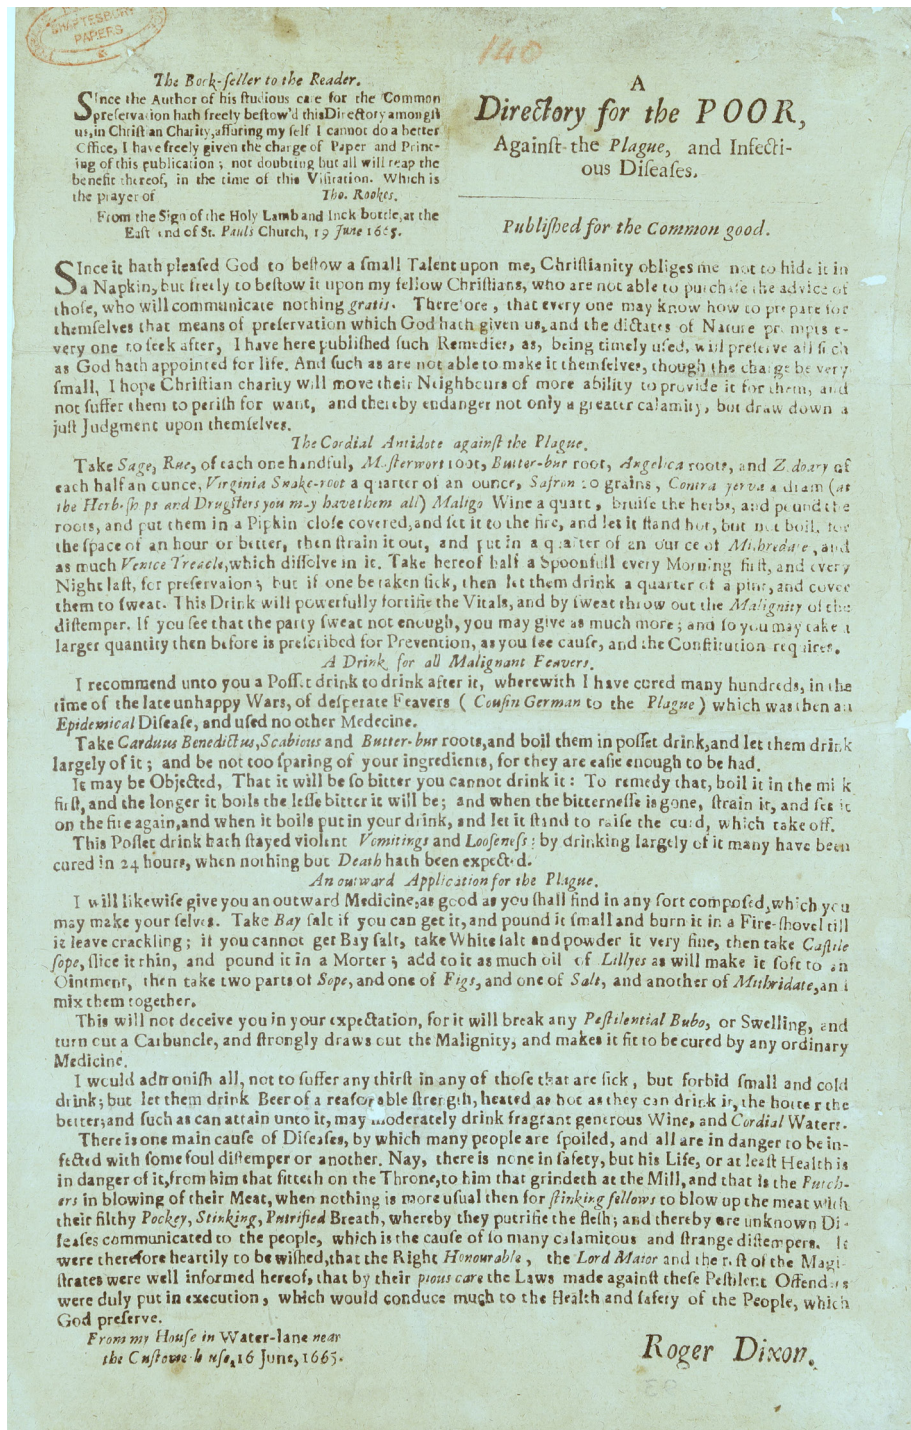 SHAFTESBURY
PAPERS
140
The Book-ſeller to the Reader.
SInce the Author of his ſtudious care for the Common
preſervation hath freely beſtow'd this Directory amongſt
us, in Chriſtian Charity, aſſuring my ſelf I cannot do a better
Office, I have freely given the charge of Paper and Print-
ing of this publication; not doubting but all will reap the
benefit thereof, in the time of this Viſitation. Which is
the prayer of Tho. Rookes.
From the Sign of the Holy Lamb and Inck bottle, at the
Eaſt end of St. Pauls Church, 19 June 1665.
A
Directory for the POOR,
Againſt the Plague, and Infecti-
ous Diſeaſes.
Publiſhed for the Common good.
SInce it hath pleaſed God to beſtow a ſmall Talent upon me, Chriſtianity obliges me not to hide it in
a Napkin, but freely to beſtow it upon my fellow Chriſtians, who are not able to purchaſe the advice of
thoſe, who will communicate nothing gratis. Therefore, that every one may know how to prepare for
themſelves that means of preſervation which God hath given us, and the dictates of Nature prompts e-
very one to ſeek after, I have here publiſhed ſuch Remedies, as, being timely uſed, will preſerve all ſuch
as God hath appointed for life. And ſuch as are not able to make it themſelves, though the charge be very
ſmall, I hope Chriſtian charity will move their Neighbours of more ability to provide it for them, and
not ſuffer them to periſh for want, and thereby endanger not only a greater calamity, but draw down a
juſt Judgment upon themſelves.
The Cordial Antidote againſt the Plague.
Take Sage, Rue, of each one handful, Maſterwort root, Butter-bur root, Angelica roots, and Zedoary of
each half an ounce, Virginia Snake-root a quarter of an ounce, Safron 20 grains, Contra yerva a dram (at
the Herb-ſhops and Druggſters you may have them all) Maligo Wine a quart, bruiſe the herbs, and pound the
roots, and put them in a Pipkin cloſe covered, and ſet it to the fire, and let it ſtand hot, but not boil, for
the ſpace of an hour or better, then ſtrain it out, and put in a quarter of an ounce of Mithredate, and
as much Venice Treacle, which diſſolve in it. Take hereof half a Spoonfull every Morning firſt, and every
Night laſt, for preſervaion; but if one be taken ſick, then let them drink a quarter of a pint, and cover
them to ſweat. This Drink will powerfully fortifie the Vitals, and by ſweat throw out the Malignity of the
diſtemper. If you ſee that the party ſweat not enough, you may give as much more; and ſo you may take a
larger quantity then before is preſcribed for Prevention, as you ſee cauſe, and the Conſtitution requires.
A Drink for all Malignant Feavers.
I recommend unto you a Poſſet drink to drink after it, wherewith I have cured many hundreds, in the
time of the late unhappy Wars, of deſperate Feavers (Couſin German to the Plague) which was then an
Epidemical Diſeaſe, and uſed no other Medecine.
Take Carduus Benedictus, Scabious and Butter-bur roots, and boil them in poſſet drink, and let them drink
largely of it; and be not too ſparing of your ingredients, for they are eaſie enough to be had.
It may be Objected, That it will be ſo bitter you cannot drink it: To remedy that, boil it in the milk
firſt, and the longer it boils the leſſe bitter it will be; and when the bitterneſſe is gone, ſtrain it, and ſet it
on the fire again, and when it boils put in your drink, and let it ſtand to raiſe the curd, which take off.
This Poſſet drink hath ſtayed violent Vomitings and Looſeneſs: by drinking largely of it many have been
cured in 24 hours, when nothing but Death hath been expected.
An outward Application for the Plague.
I will likewiſe give you an outward Medicine, as good as you ſhall find in any ſort compoſed, which you
may make your ſelves. Take Bay ſalt if you can get it, and pound it ſmall and burn it in a Fire-ſhovel till
it leave crackling; if you cannot get Bay ſalt, take White ſalt and powder it very fine, then take Caſtile
ſope, ſlice it thin, and pound it in a Morter; add to it as much oil of Lillyes as will make it ſoft to an
Ointment, then take two parts of Sope, and one of Figs, and one of Salt, and another of Mithridate, and
mix them together.
This will not deceive you in your expectation, for it will break any Peſtilential Bubo, or Swelling, and
turn out a Carbuncle, and ſtrongly draws out the Malignity, and makes it fit to be cured by any ordinary
Medicine.
I would admoniſh all, not to ſuffer any thirſt in any of thoſe that are ſick, but forbid ſmall and cold
drink; but let them drink Beer of a reaſonable ſtrength, heated as hot as they can drink it, the hotter the
better; and ſuch as can attain unto it, may moderately drink fragrant generous Wine, and Cordial Waters.
There is one main cauſe of Diſeaſes, by which many people are ſpoiled, and all are in danger to be in-
fected with ſome foul diſtemper or another. Nay, there is none in ſafety, but his Life, or at leaſt Health is
in danger of it, from him that ſitteth on the Throne, to him that grindeth at the Mill, and that is the Butch-
ers in blowing of their Meat, when nothing is more uſual then for ſtinking fellows to blow up the meat with
their filthy Pockey, Stinking, Putrified Breath, whereby they putrifie the fleſh; and thereby are unknown Di-
ſeaſes communicated to the people, which is the cauſe of ſo many calamitous and ſtrange diſtempers. It
were therefore heartily to be wiſhed, that the Right Honourable, the Lord Maior and the reſt of the Magi-
ſtrates were well informed hereof, that by their pious care the Laws made againſt theſe Peſtilent Offenders
were duly put in execution, which would conduce much to the Health and ſafety of the People, which
God preſerve.
From my Houſe in Water-lane near
the Cuſtome-houſe, 16 June, 1665.
Roger Dixon.